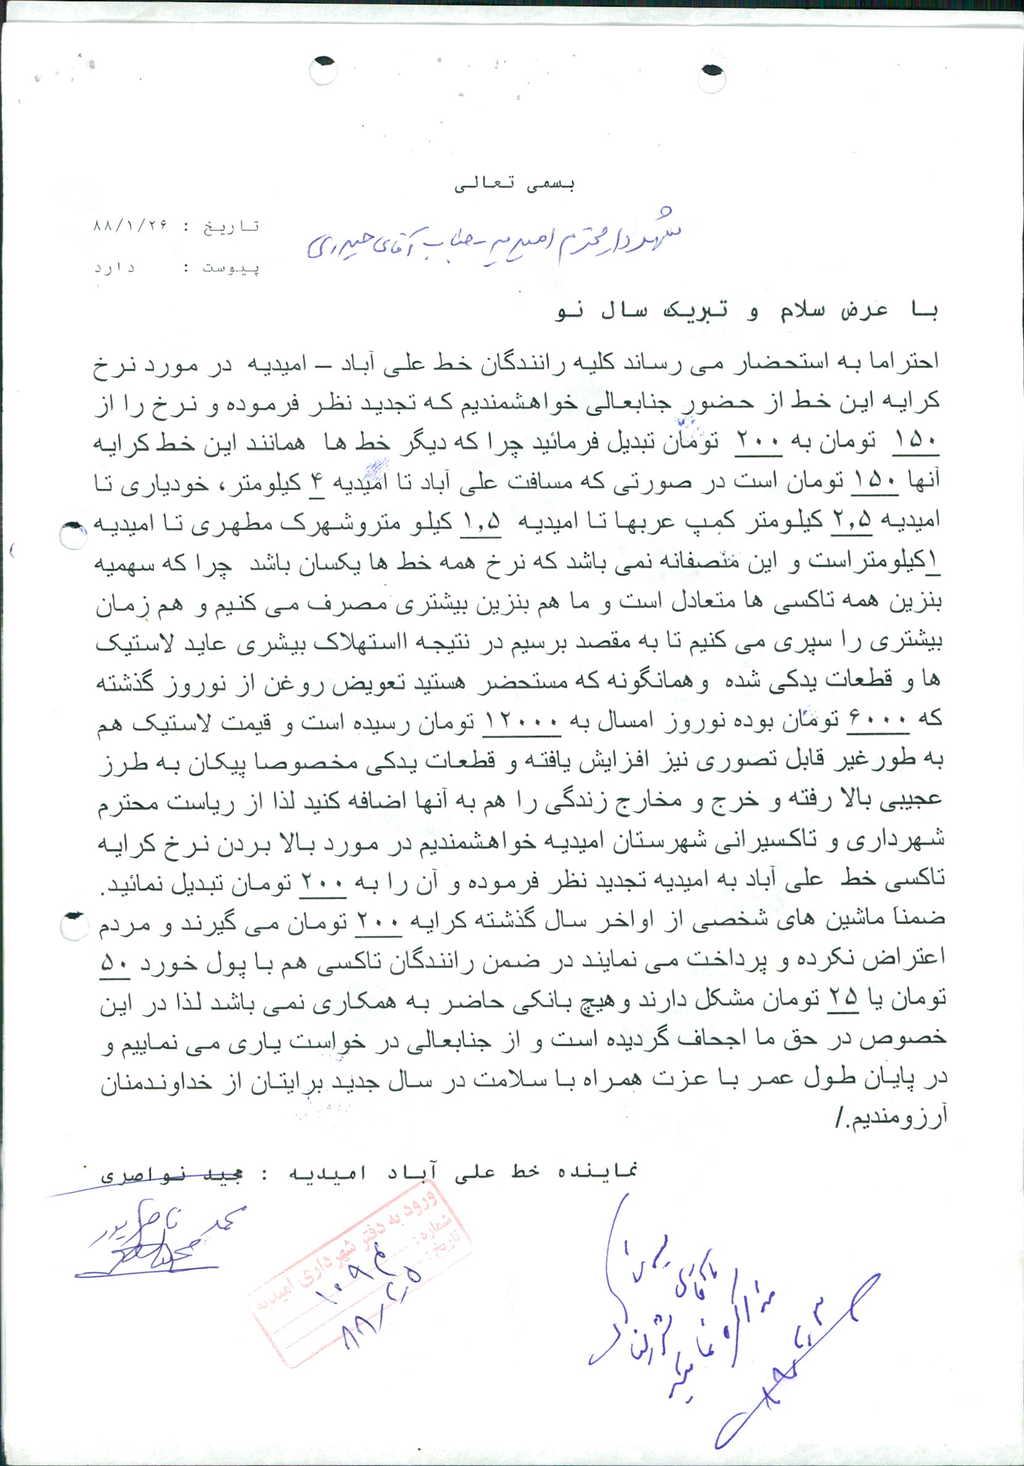 بسمی تعالی
تاریخ : ۸۸/۱/۲۶
شهردار محترم امیدیه - جناب آقای حیدری
پیوست : دارد
با عرض سلام و تبریک سال نو
احتراما به استحضار می رساند کلیه رانندگان خط علی آباد – امیدیه در مورد نرخ
کرایه این خط از حضور جنابعالی خواهشمندیم که تجدید نظر فرموده و نرخ را از
۱۵۰ تومان به ۲۰۰ تومان تبدیل فرمائید چرا که دیگر خط ها همانند این خط کرایه
آنها ۱۵۰ تومان است در صورتی که مسافت علی آباد تا امیدیه ۴ کیلومتر، خودیاری تا
امیدیه ۲,۵ کیلومتر کمپ عربها تا امیدیه ۱,۵ کیلو متروشهرک مطهری تا امیدیه
۱کیلومتراست و این منصفانه نمی باشد که نرخ همه خط ها یکسان باشد چرا که سهمیه
بنزین همه تاکسی ها متعادل است و ما هم بنزین بیشتری مصرف می کنیم و هم زمان
بیشتری را سپری می کنیم تا به مقصد برسیم در نتیجه ااستهلاک بیشری عاید لاستیک
ها و قطعات یدکی شده وهمانگونه که مستحضر هستید تعویض روغن از نوروز گذشته
که ۶۰۰۰ تومان بوده نوروز امسال به ۱۲۰۰۰ تومان رسیده است و قیمت لاستیک هم
به طورغیر قابل تصوری نیز افزایش یافته و قطعات یدکی مخصوصا پیکان به طرز
عجیبی بالا رفته و خرج و مخارج زندگی را هم به آنها اضافه کنید لذا از ریاست محترم
شهرداری و تاکسیرانی شهرستان امیدیه خواهشمندیم در مورد بالا بردن نرخ کرایه
تاکسی خط علی آباد به امیدیه تجدید نظر فرموده و آن را به ۲۰۰ تومان تبدیل نمائید.
ضمناً ماشین های شخصی از اواخر سال گذشته کرایه ۲۰۰ تومان می گیرند و مردم
اعتراض نکرده و پرداخت می نمایند در ضمن رانندگان تاکسی هم با پول خورد ۵۰
تومان یا ۲۵ تومان مشکل دارند وهیچ بانکی حاضر به همکاری نمی باشد لذا در این
خصوص در حق ما اجحاف گردیده است و از جنابعالی در خواست یاری می نماییم و
در پایان طول عمر با عزت همراه با سلامت در سال جدید برایتان از خداوندمنان
آرزومندیم./
نماینده خط علی آباد امیدیه : مجید نواصری
محمد ناصرپور
ورود به دفتر شهرداری امیدیه
شماره: ۱۰۹م
تاریخ: ۸۸/۲/۵